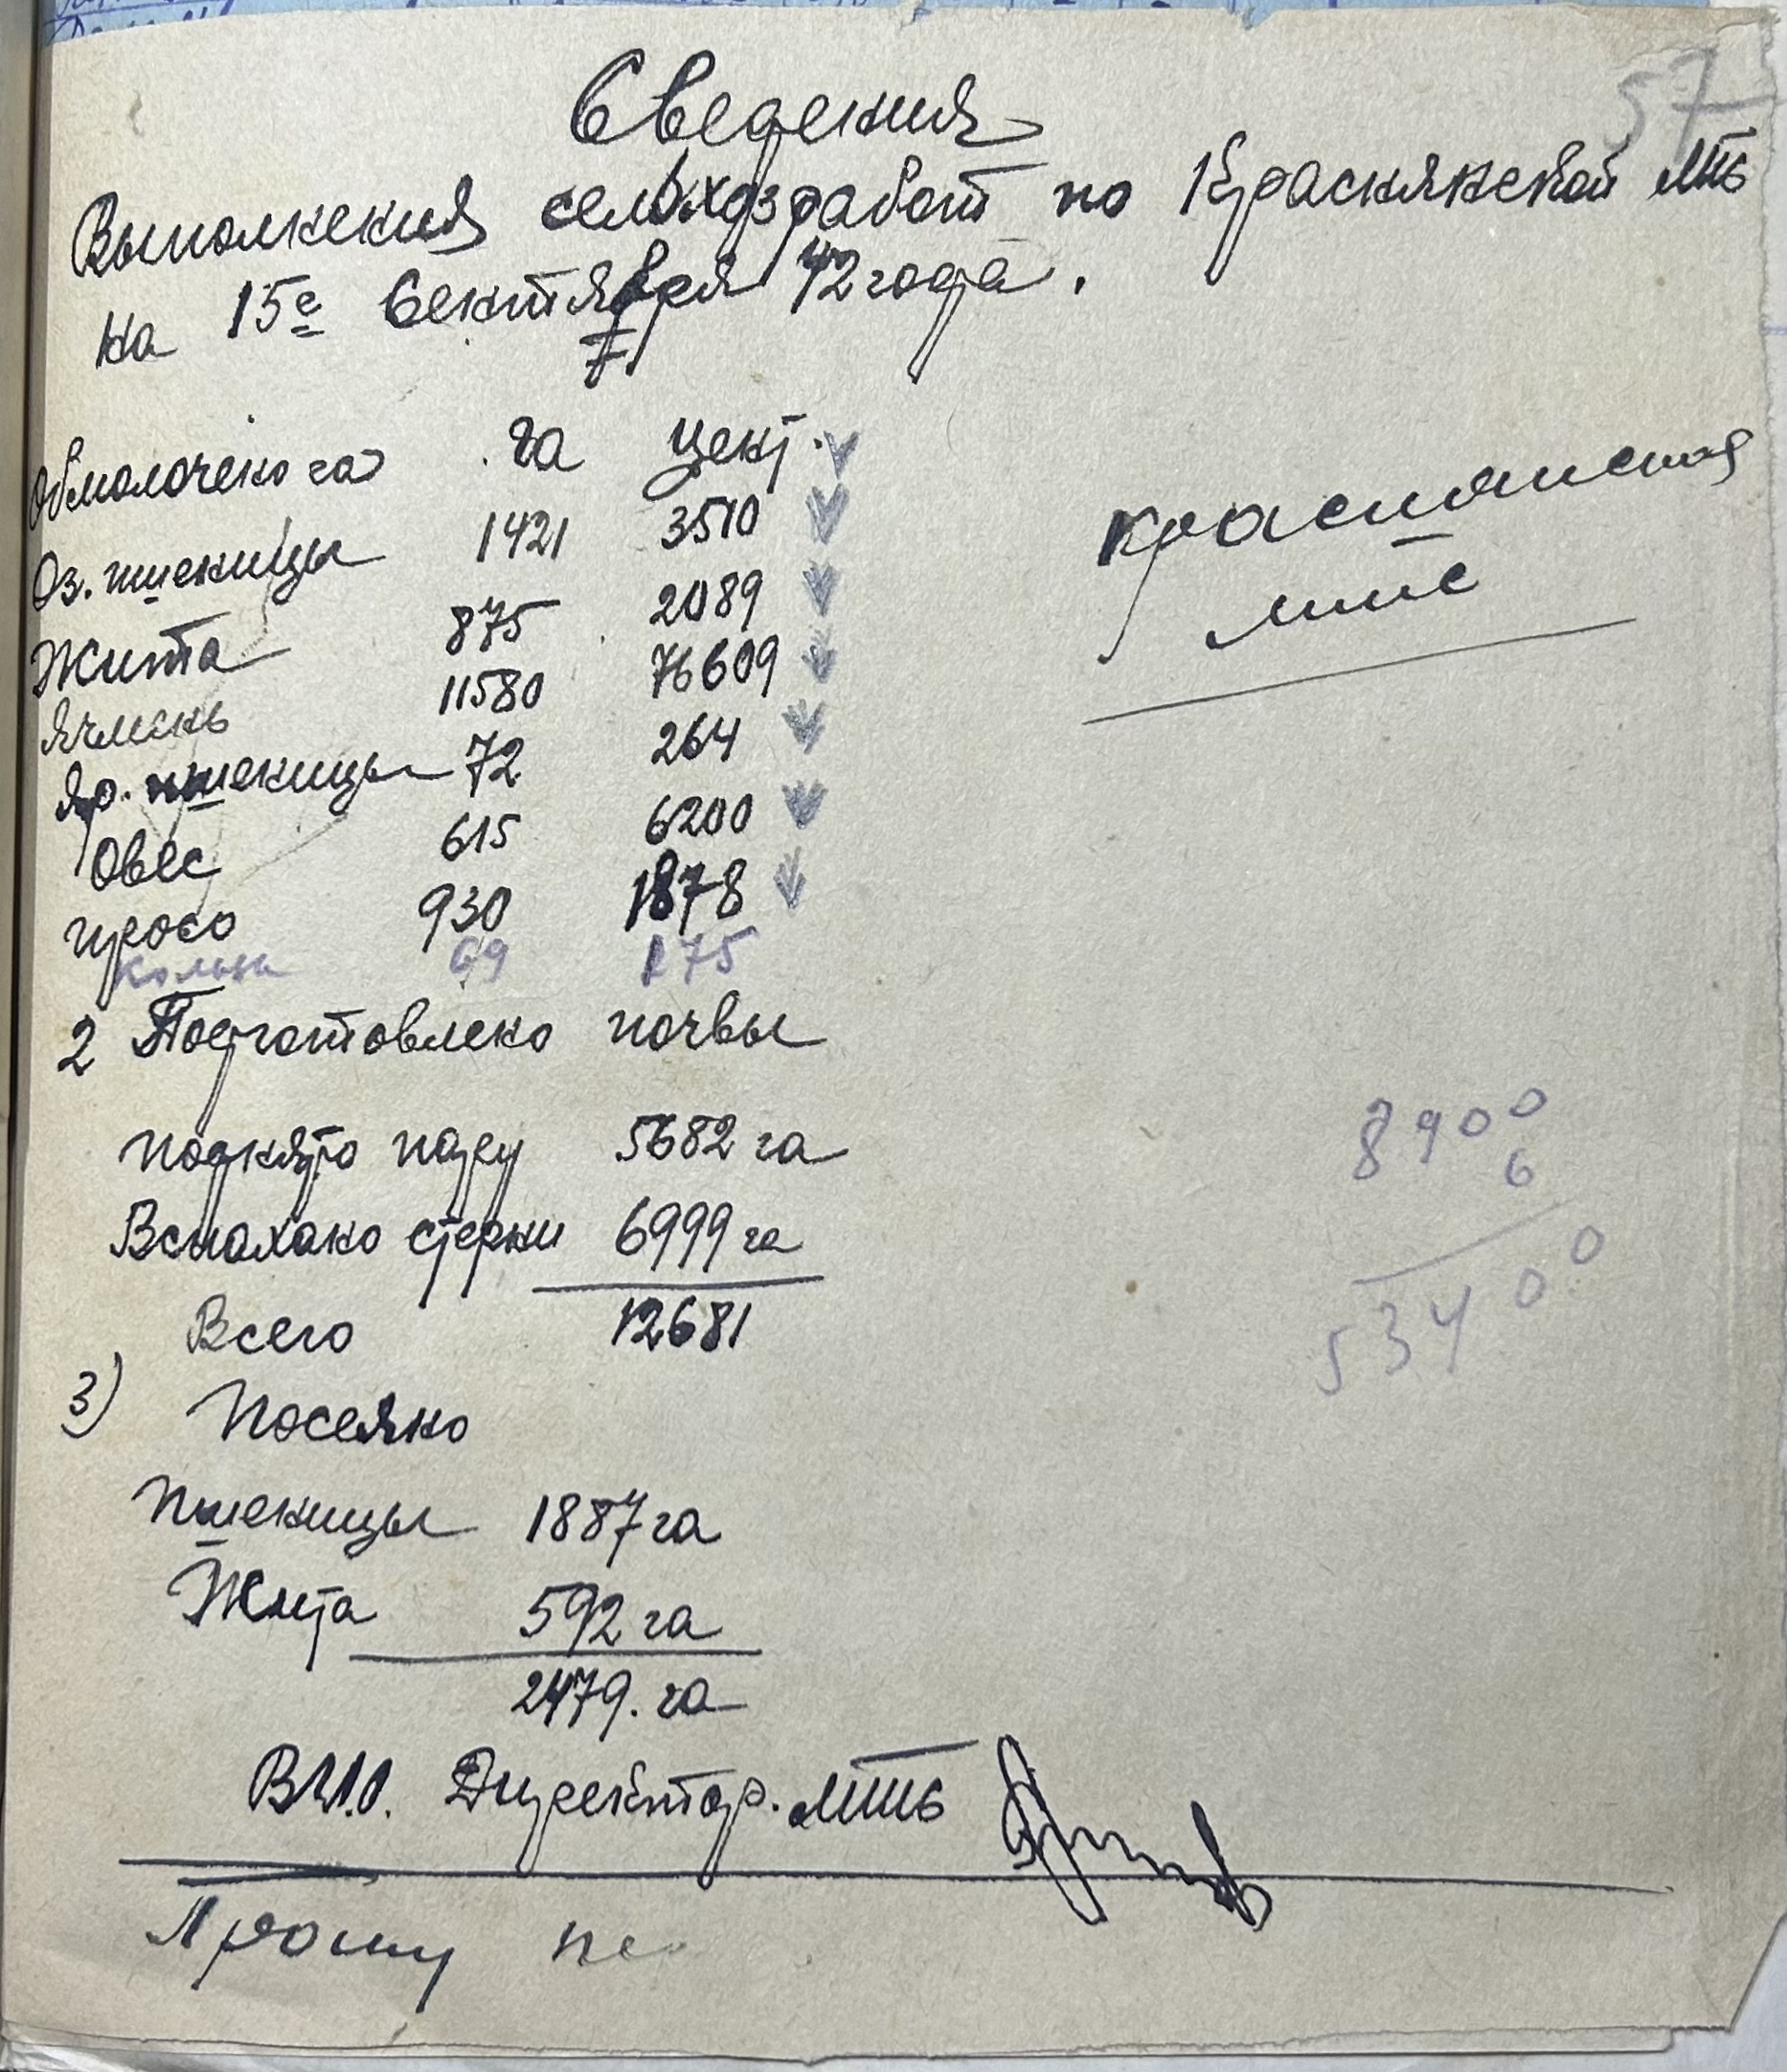 57
Сведения
Выполнения сельхозработ по Краснянской МТС
на 15е Сентября 42 года.
Обмолочено га га цент.
Оз. пшеницы 1421 3510
Жита 875 2089
Ячмень 11580 76609
Яр. пшеницы 72 264
Овес 615 6200
просо 930 1878
69 175
Краснянская
мтс
2 Подготовлено почвы
поднято пару 5682 га
Вспахано стерни 6999 га
Всего 12681
8900
6
53400
3) Посеяно
Пшеницы 1887 га
Жита 592 га
2479. га
В.И.О. Директор. МТС
Прошу